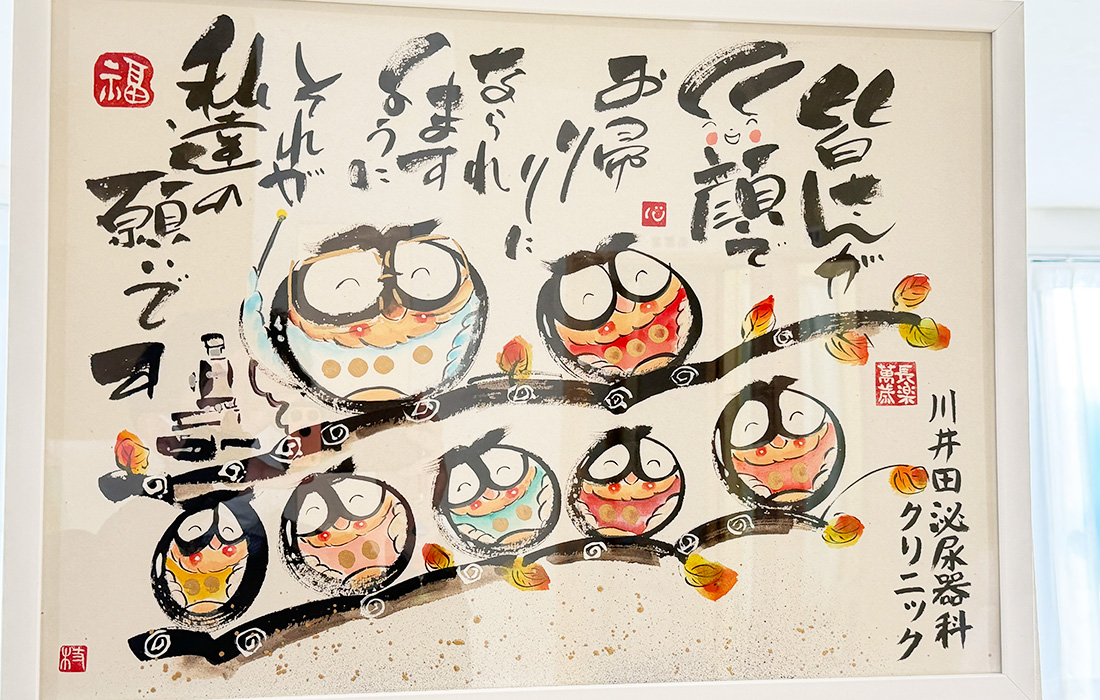 皆さんが
笑顔で
お帰りに
なられ
ます
ように
それが
私達の
願いです
福
心
長楽
萬歳
川井田泌尿器科
クリニック